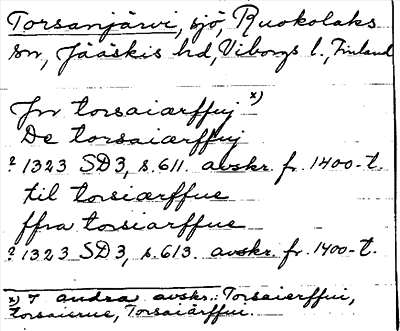 Torsanjärvi, sjö, Ruokolaks
sn, Jääskis hd, Viborgs l., Finland
Jn torsaiærffuj x)
De torsaiærffuj
? 1323 SD3, s. 611. avskr. fr. 1400-t.
til torsiærffue
ffra torsiærffue
? 1323 SD3, s. 613. avskr. fr. 1400-t.
x) I andra avskr.: Torsaierffui,
torsaierue, Torsaiärffui.